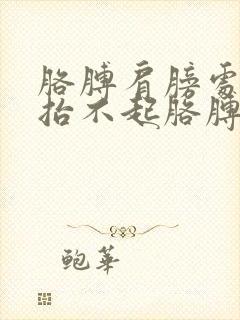 胳膊肩膀需
抬不起胳膊
鲍华